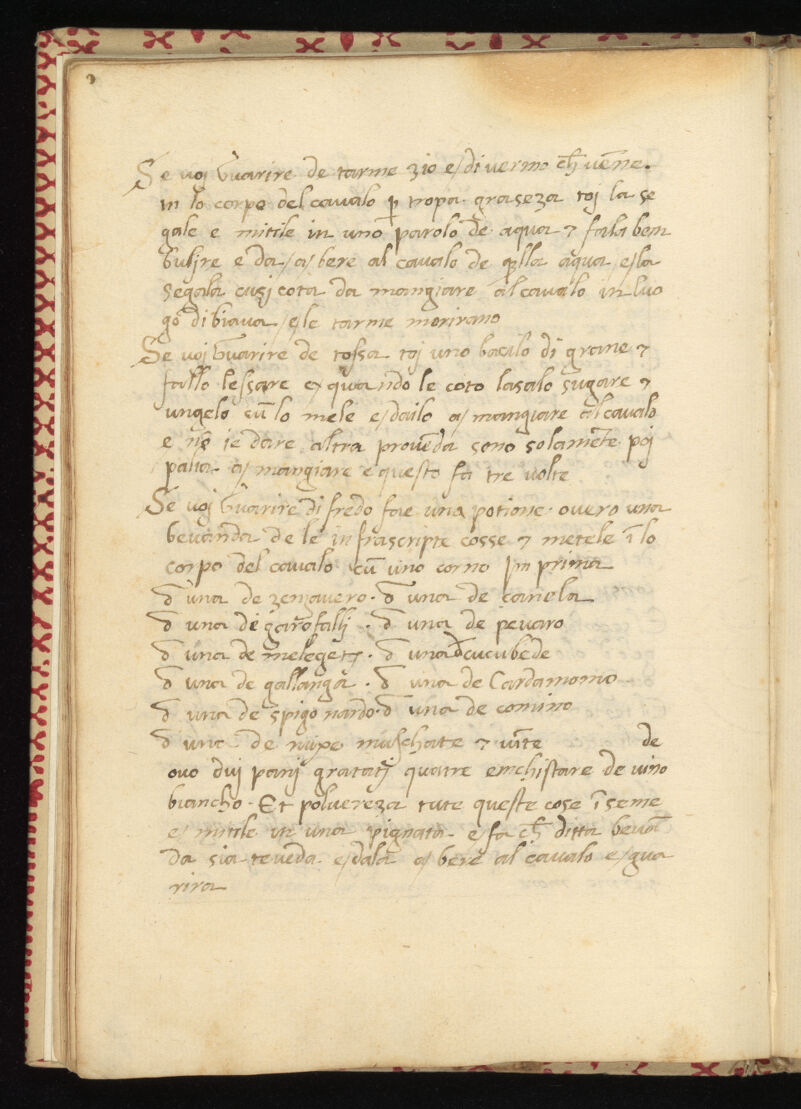 Se voj Guarire de tarme zio e/ di vermo ch̄ vēne.
in lo corpo del cavalo p̱ tropa graseza toj la se
gale e mitile in uno parolo de aqua ⁊ fala ben
Buljre e da /a/ bere al cavalo de q̄lla aqua e/ la
segala cusj cota da mangiare al cavalo in luo
go di biava e/ le tarme morirano
Se voj Guarire de tossa toj uno bacilo di grane ⁊
fallo lessare e/ quando le coto lasalo sugare ⁊
ungelo cū lo mele e/ dailo a/ mangiare al cavalo
e nō ie dare altra provēda sono solamēte poj
palia a/ mangiare e questo fa tre volte
Se voj Guarire di fredo fae una potione overo una
bevanda de le infrascripte cosse ⁊ metele ī lo
corpo del cavalo cū uno corno Jn prima
una de zenzavero. una de canela
una de garofallj. una de pevaro
una de melegetj. una de cucubede
una de gallanga. una de Cardamomo
una de spigo nardo. una de comino
una de nuxe muschate ⁊ vīte de
ovo duj panj gratatj quatre enghistare de vino
biancho. Et polvereza tute queste cose īseme
e/ mitile in una pignata e fa ch̄ ditta bevā
da sia teveda e/ dala a/ bere al cavalo e/ gua
rira